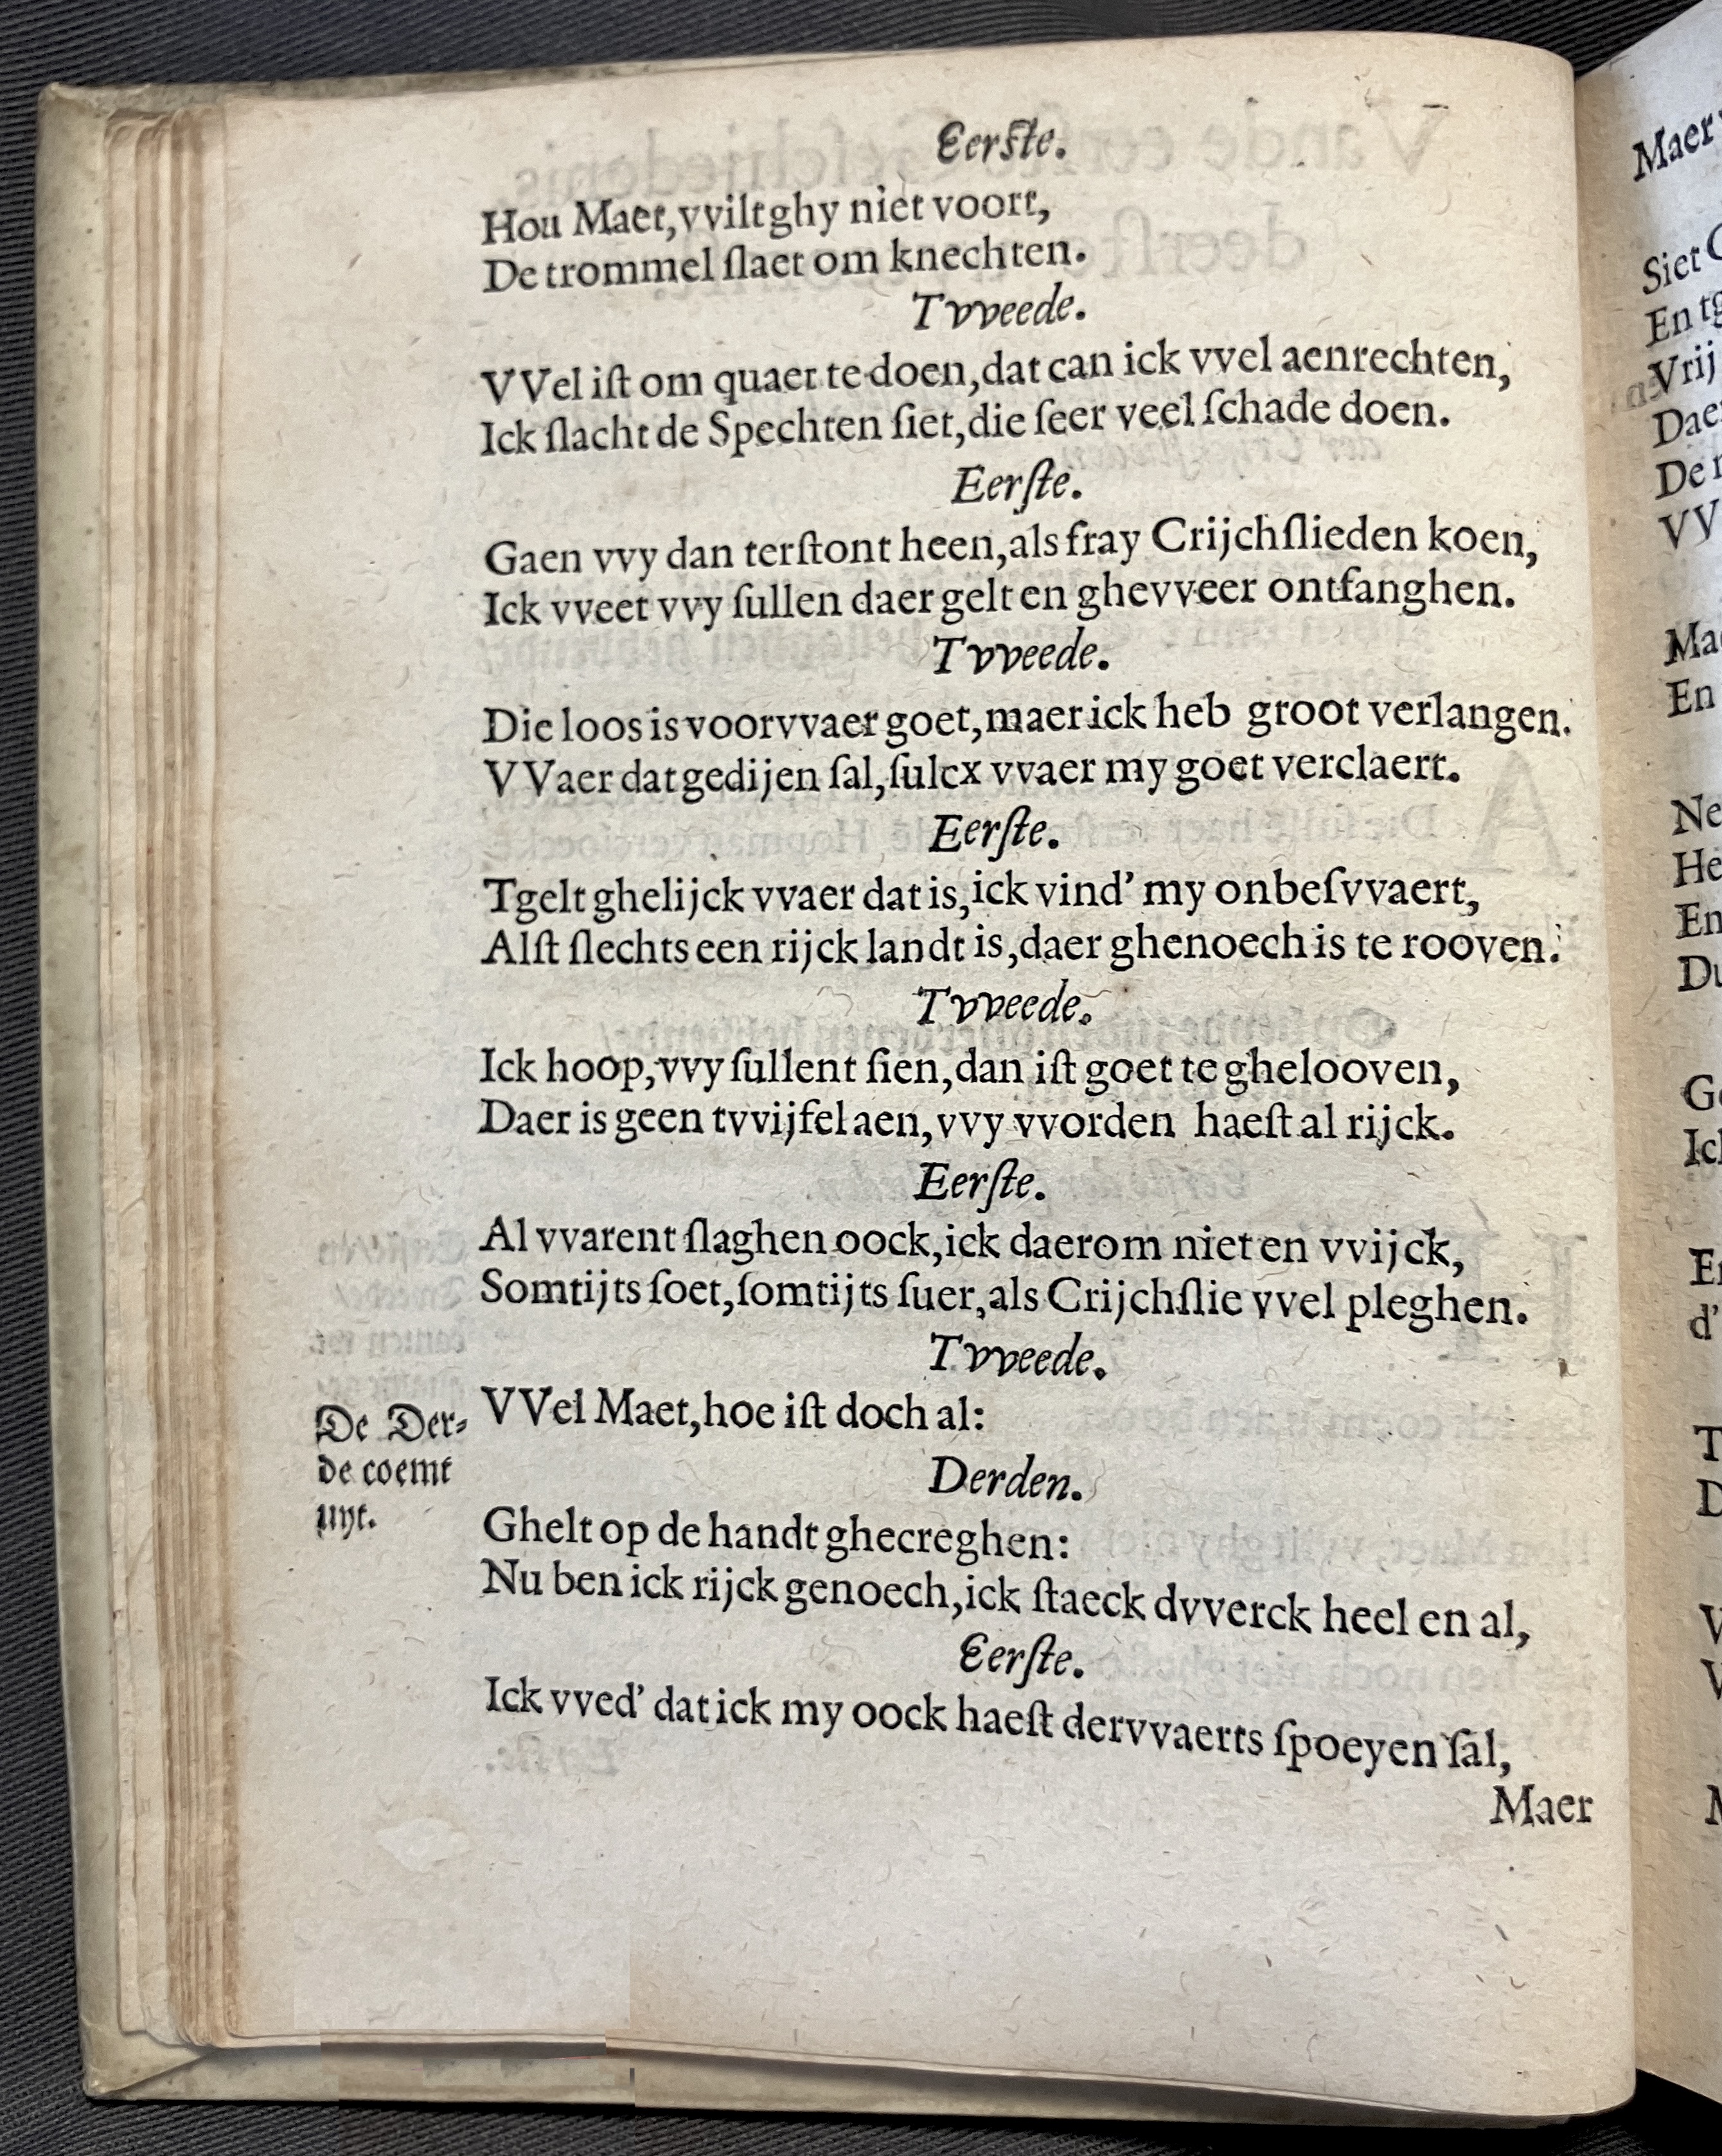 Eerſte.
Hou Maet,vviltghy niet voort,
De trommel ſlaet om knechten.
Tvveede.
VVel iſt om quaet te doen,dat can ick vvel aenrechten,
Ick ſlacht de Spechten ſiet,die ſeer veel ſchade doen.
Eerſte.
Gaen vvy dan terſtont heen,als fray Crijchſlieden koen,
Ick vveet vvy ſullen daer gelt en ghevveer ontfanghen.
Tvveede.
Die loos is voorvvaer goet,maer ick heb groot verlangen.
VVaer dat gedijen ſal,ſulcx vvaer my goet verclaert.
Eerſte.
Tgelt ghelijck vvaer dat is,ick vind’ my onbeſvvaert,
Alſt ſlechts een rijck landt is,daer ghenoech is te rooven.
Tvveede.
Ick hoop,vvy ſullent ſien,dan iſt goet te ghelooven,
Daer is geen tvvijfel aen,vvy vvorden haeſt al rijck.
Eerſte.
Al vvarent ſlaghen oock,ick daerom niet en vvijck,
Somtijts ſoet,ſomtijts ſuer,als Crijchſlie vvel pleghen.
Tvveede.
VVel Maet,hoe iſt doch al:
De Der-
de coemt
uyt.
Derden.
Ghelt op de handt ghecreghen:
Nu ben ick rijck genoech,ick ſtaeck dvverck heel en al,
Eerſte.
Ick vved’ dat ick my oock haeſt dervvaerts ſpoeyen ſal,
Maer
Maer
Siet
En
Vrij
De
VV
En
Ne
He
En